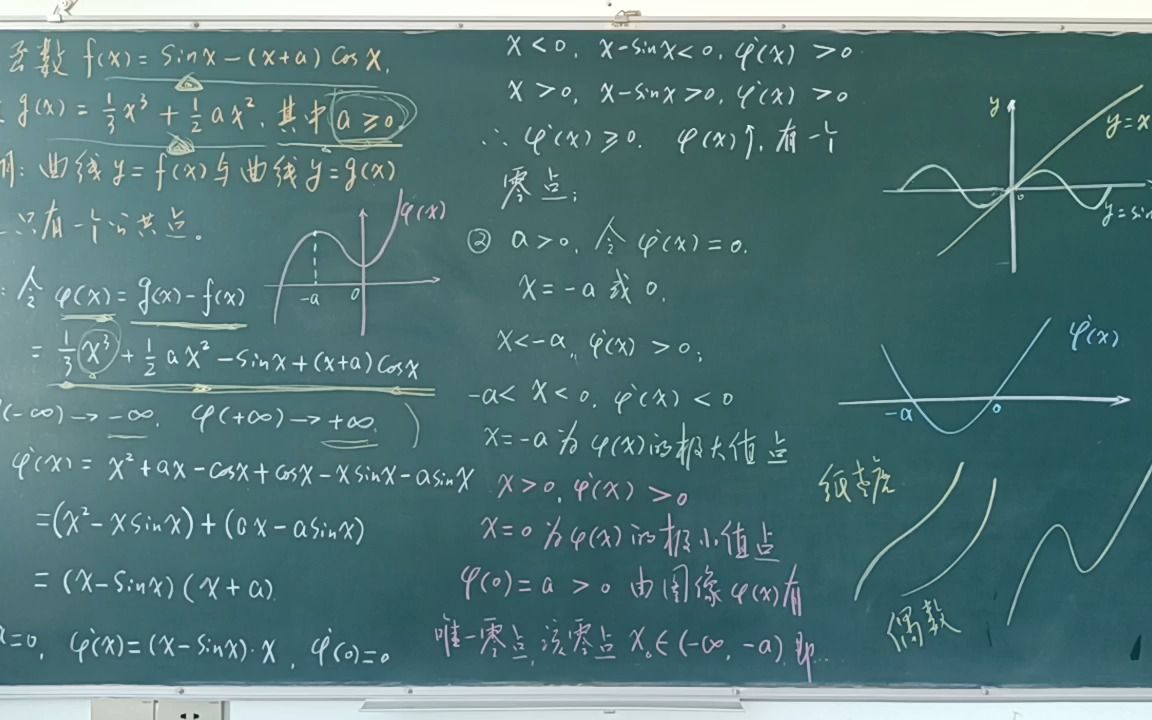 函数 f(x) = sinx - (x+a) cosx,
g(x) = 1/3 x³ + 1/2 ax², 其中 a ≥ 0
明: 曲线 y = f(x) 与曲线 y = g(x)
只有一个公共点。
令 φ(x) = g(x) - f(x)
= 1/3 x³ + 1/2 ax² - sinx + (x+a) cosx
(-∞) → -∞, φ(+∞) → +∞ )
φ'(x) = x² + ax - cosx + cosx - xsinx - asinx
= (x² - xsinx) + (ax - asinx)
= (x - sinx)(x + a)
a=0, φ'(x) = (x - sinx)·x, φ'(0) = 0
φ(x)
-a 0
x < 0, x - sinx < 0, φ'(x) > 0
x > 0, x - sinx > 0, φ'(x) > 0
∴ φ'(x) ≥ 0, φ(x)↑, 有一个
零点;
② a > 0, 令 φ'(x) = 0,
x = -a 或 0,
x < -a, φ'(x) > 0;
-a < x < 0, φ'(x) < 0
x = -a 为 φ(x) 的极大值点
x > 0, φ'(x) > 0
x = 0 为 φ(x) 的极小值点
φ(0) = a > 0 由图像 φ(x) 有
唯一零点, 该零点 x₀ ∈ (-∞, -a), 即
y
y = x
0
y = sin
φ'(x)
-a 0
偶数